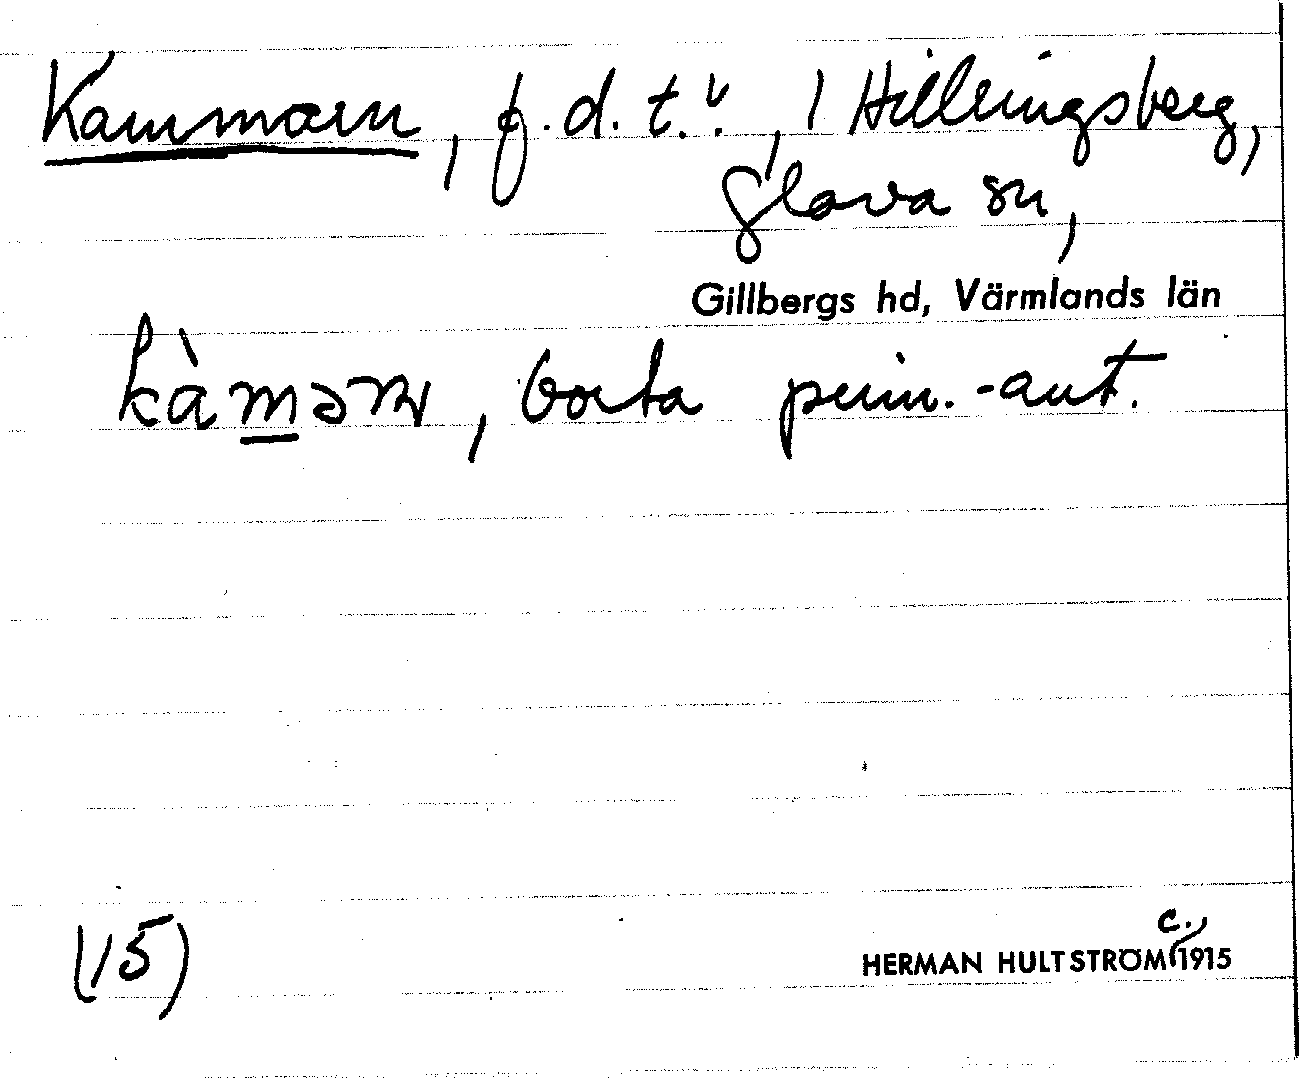 Kammarn, f.d. t.v., 1 Hillringsberg,
Glava sn,
Gillbergs hd, Värmlands län
kàmər, borta prim.-aut.
(15)
HERMAN HULTSTRÖM c., 1915